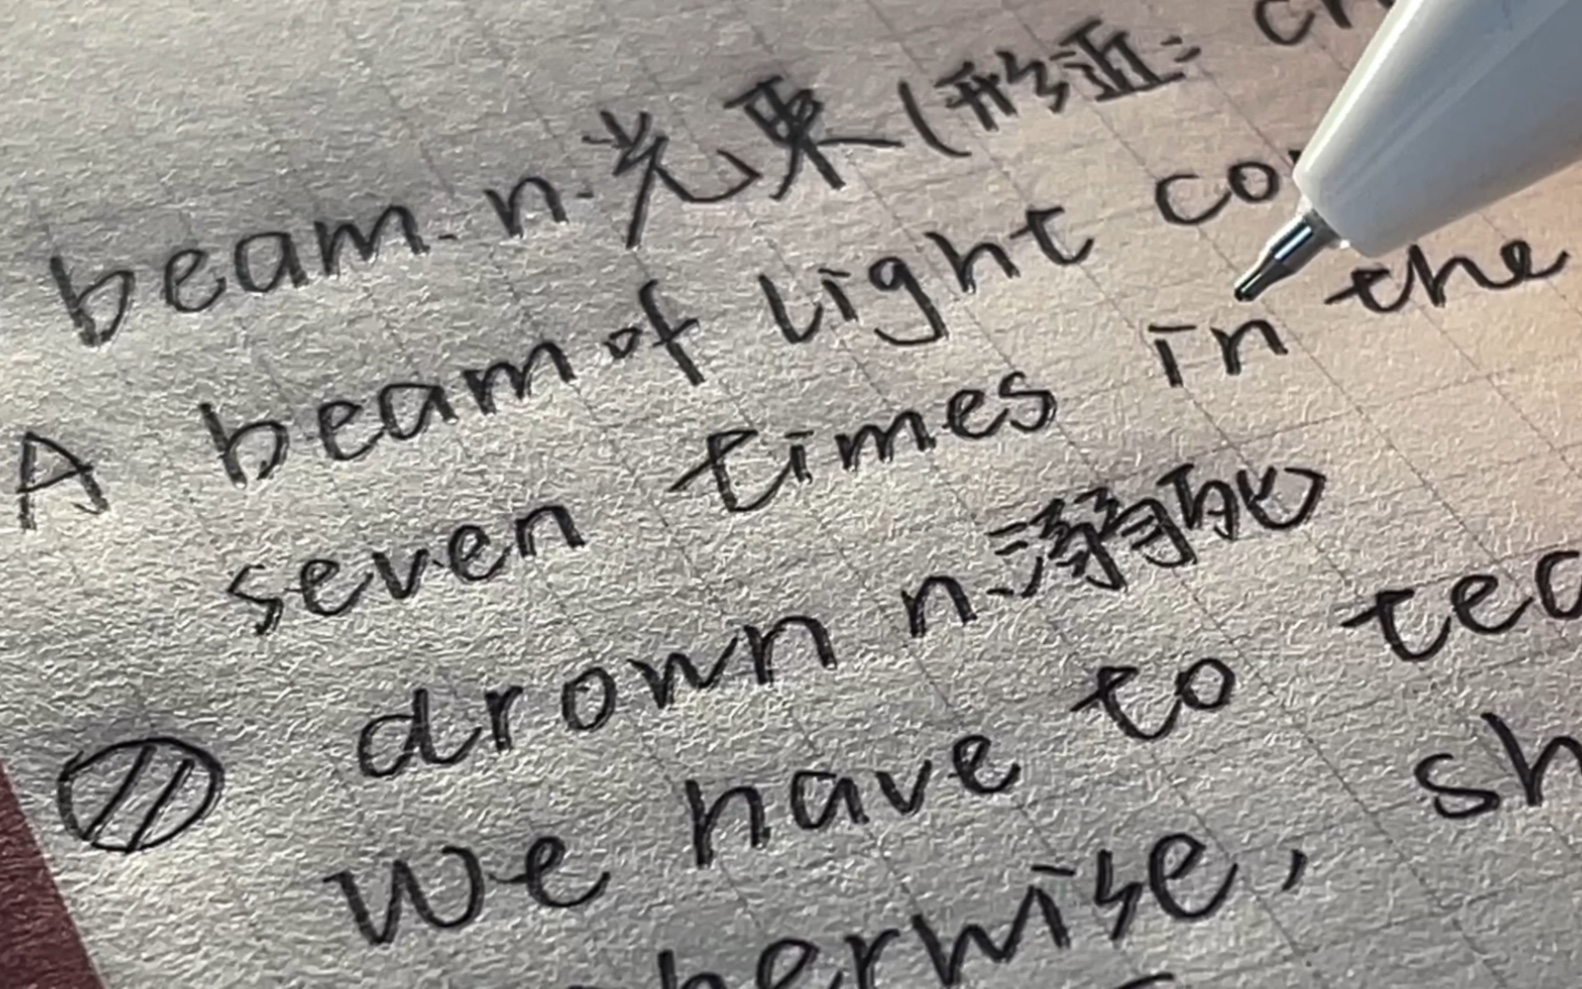 beam. n. 光束 (形近:
A beam of light
seven times in the
drown n. 溺死
We have to
otherwise,